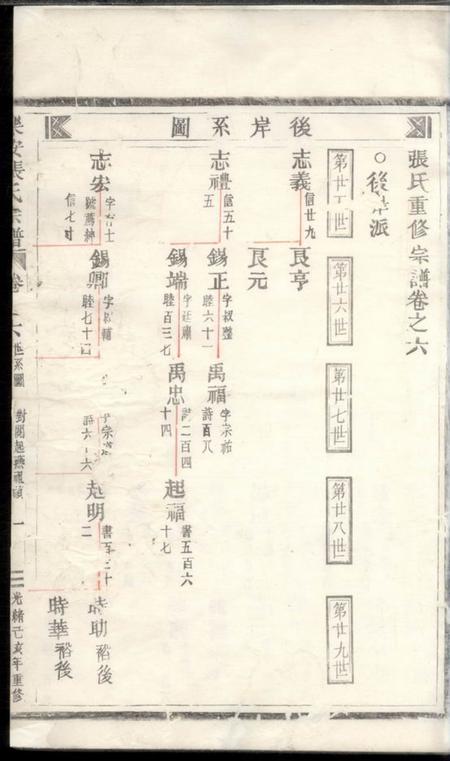 張氏重修宗譜卷之六
後岸系圖
○後岸派
第廿五世
第廿六世
第廿七世
第廿八世
第廿九世
志義 信廿九
良亨
良元
志禮 信五十五
錫正 字叔璧 睦六十一
禹福 字宗祐 詩百八
錫端 字廷肅 睦百三七
禹忠 詩二百四十四
起福 書五百六十七
志宏 字 士 號薦紳 信七十
錫卿 字叔輔 睦七十四
字宗 詩六十六
起明 書百三十二
時助 裕後
時華 裕後
樂安張氏宗譜 卷之六 世系圖 一 光緒己亥年重修